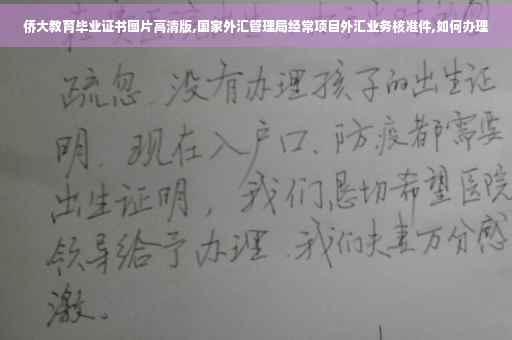 侨大教育毕业证书图片高清版,国家外汇管理局经常项目外汇业务核准件,如何办理
疏忽.没有办理孩子的出生证
明.现在入户口、防疫都需要
出生证明,我们恳切希望医院
领导给予办理.我们夫妻万分感
激。